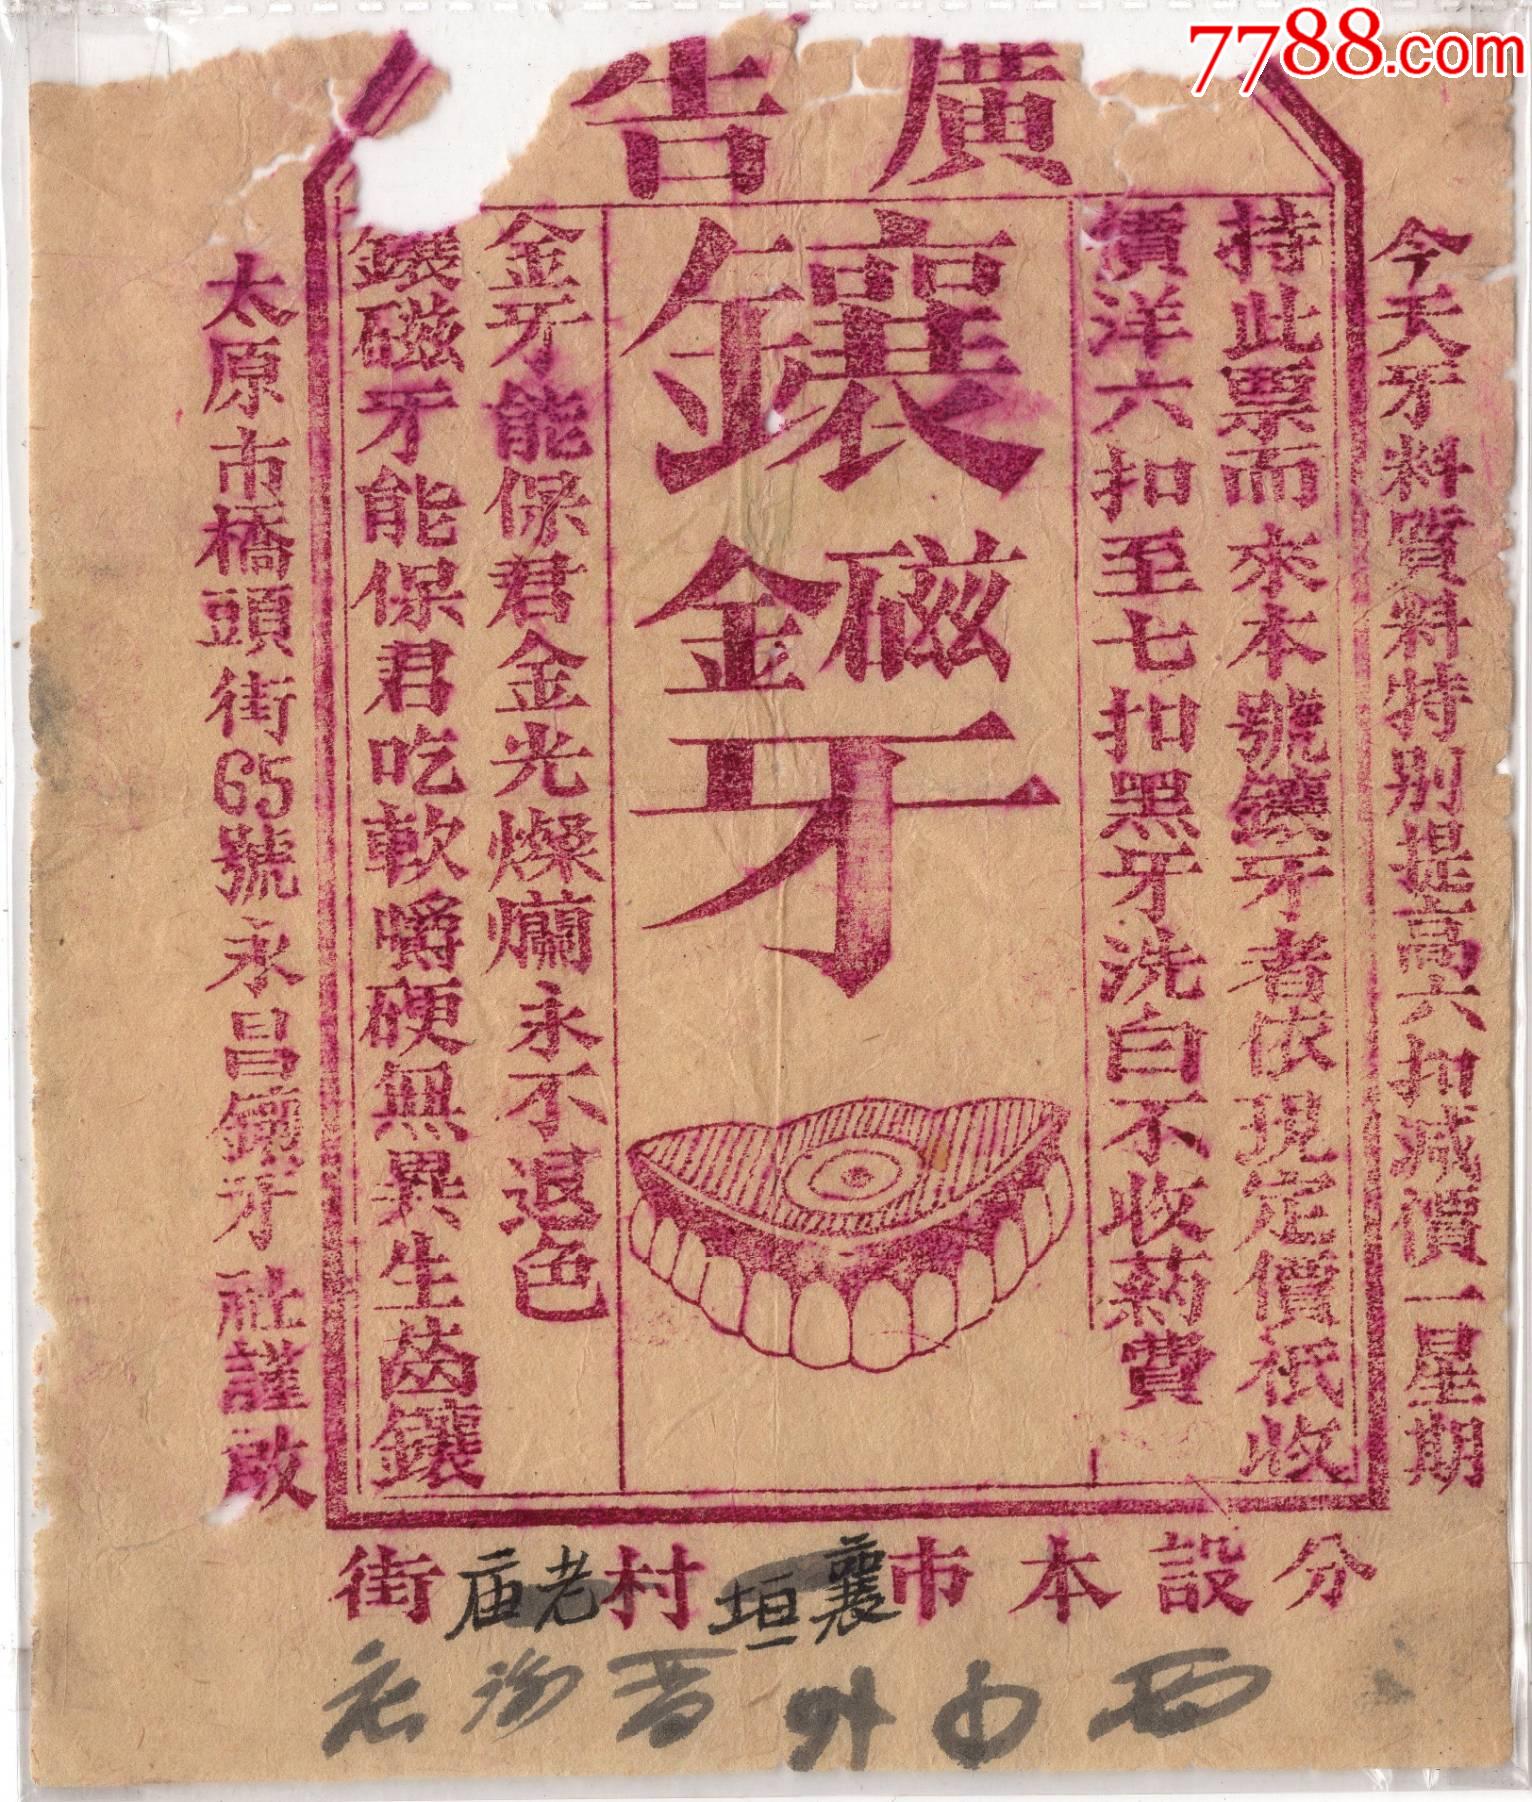 7788.com
廣告
今天牙料質料特别提高六扣減價一星期
持此票而來本號鑲牙者依現定價祇收
價洋六扣至七扣黑牙洗白不收葯費
鑲磁金牙
金牙能保君金光燦爛永不退色
鑲磁牙能保君吃軟嚼硬無異生齒鑲
太原市橋頭街65號永昌鑲牙社謹啟
分設本市襄垣村老庙街